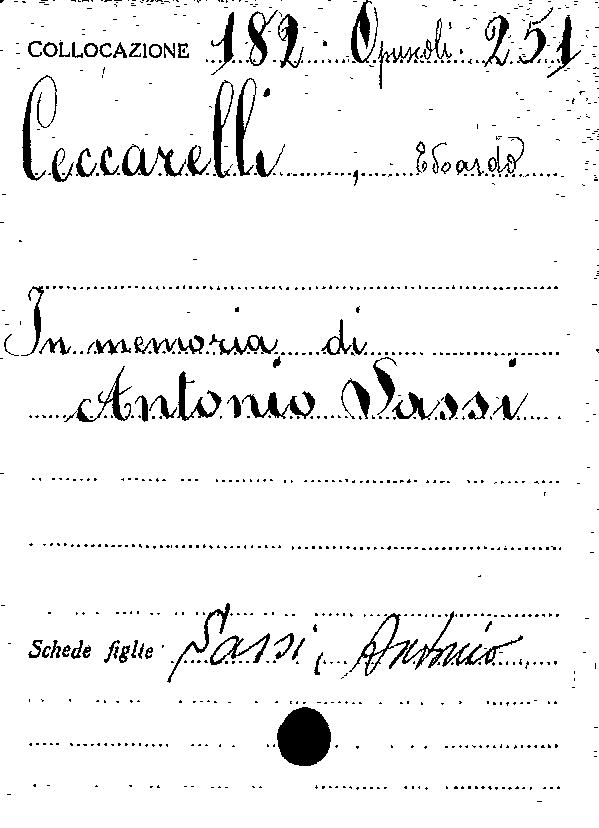 COLLOCAZIONE 182. Opuscoli. 251
Ceccarelli, Edoardo
In memoria di
Antonio Sassi
Schede figlie Sassi, Antonio